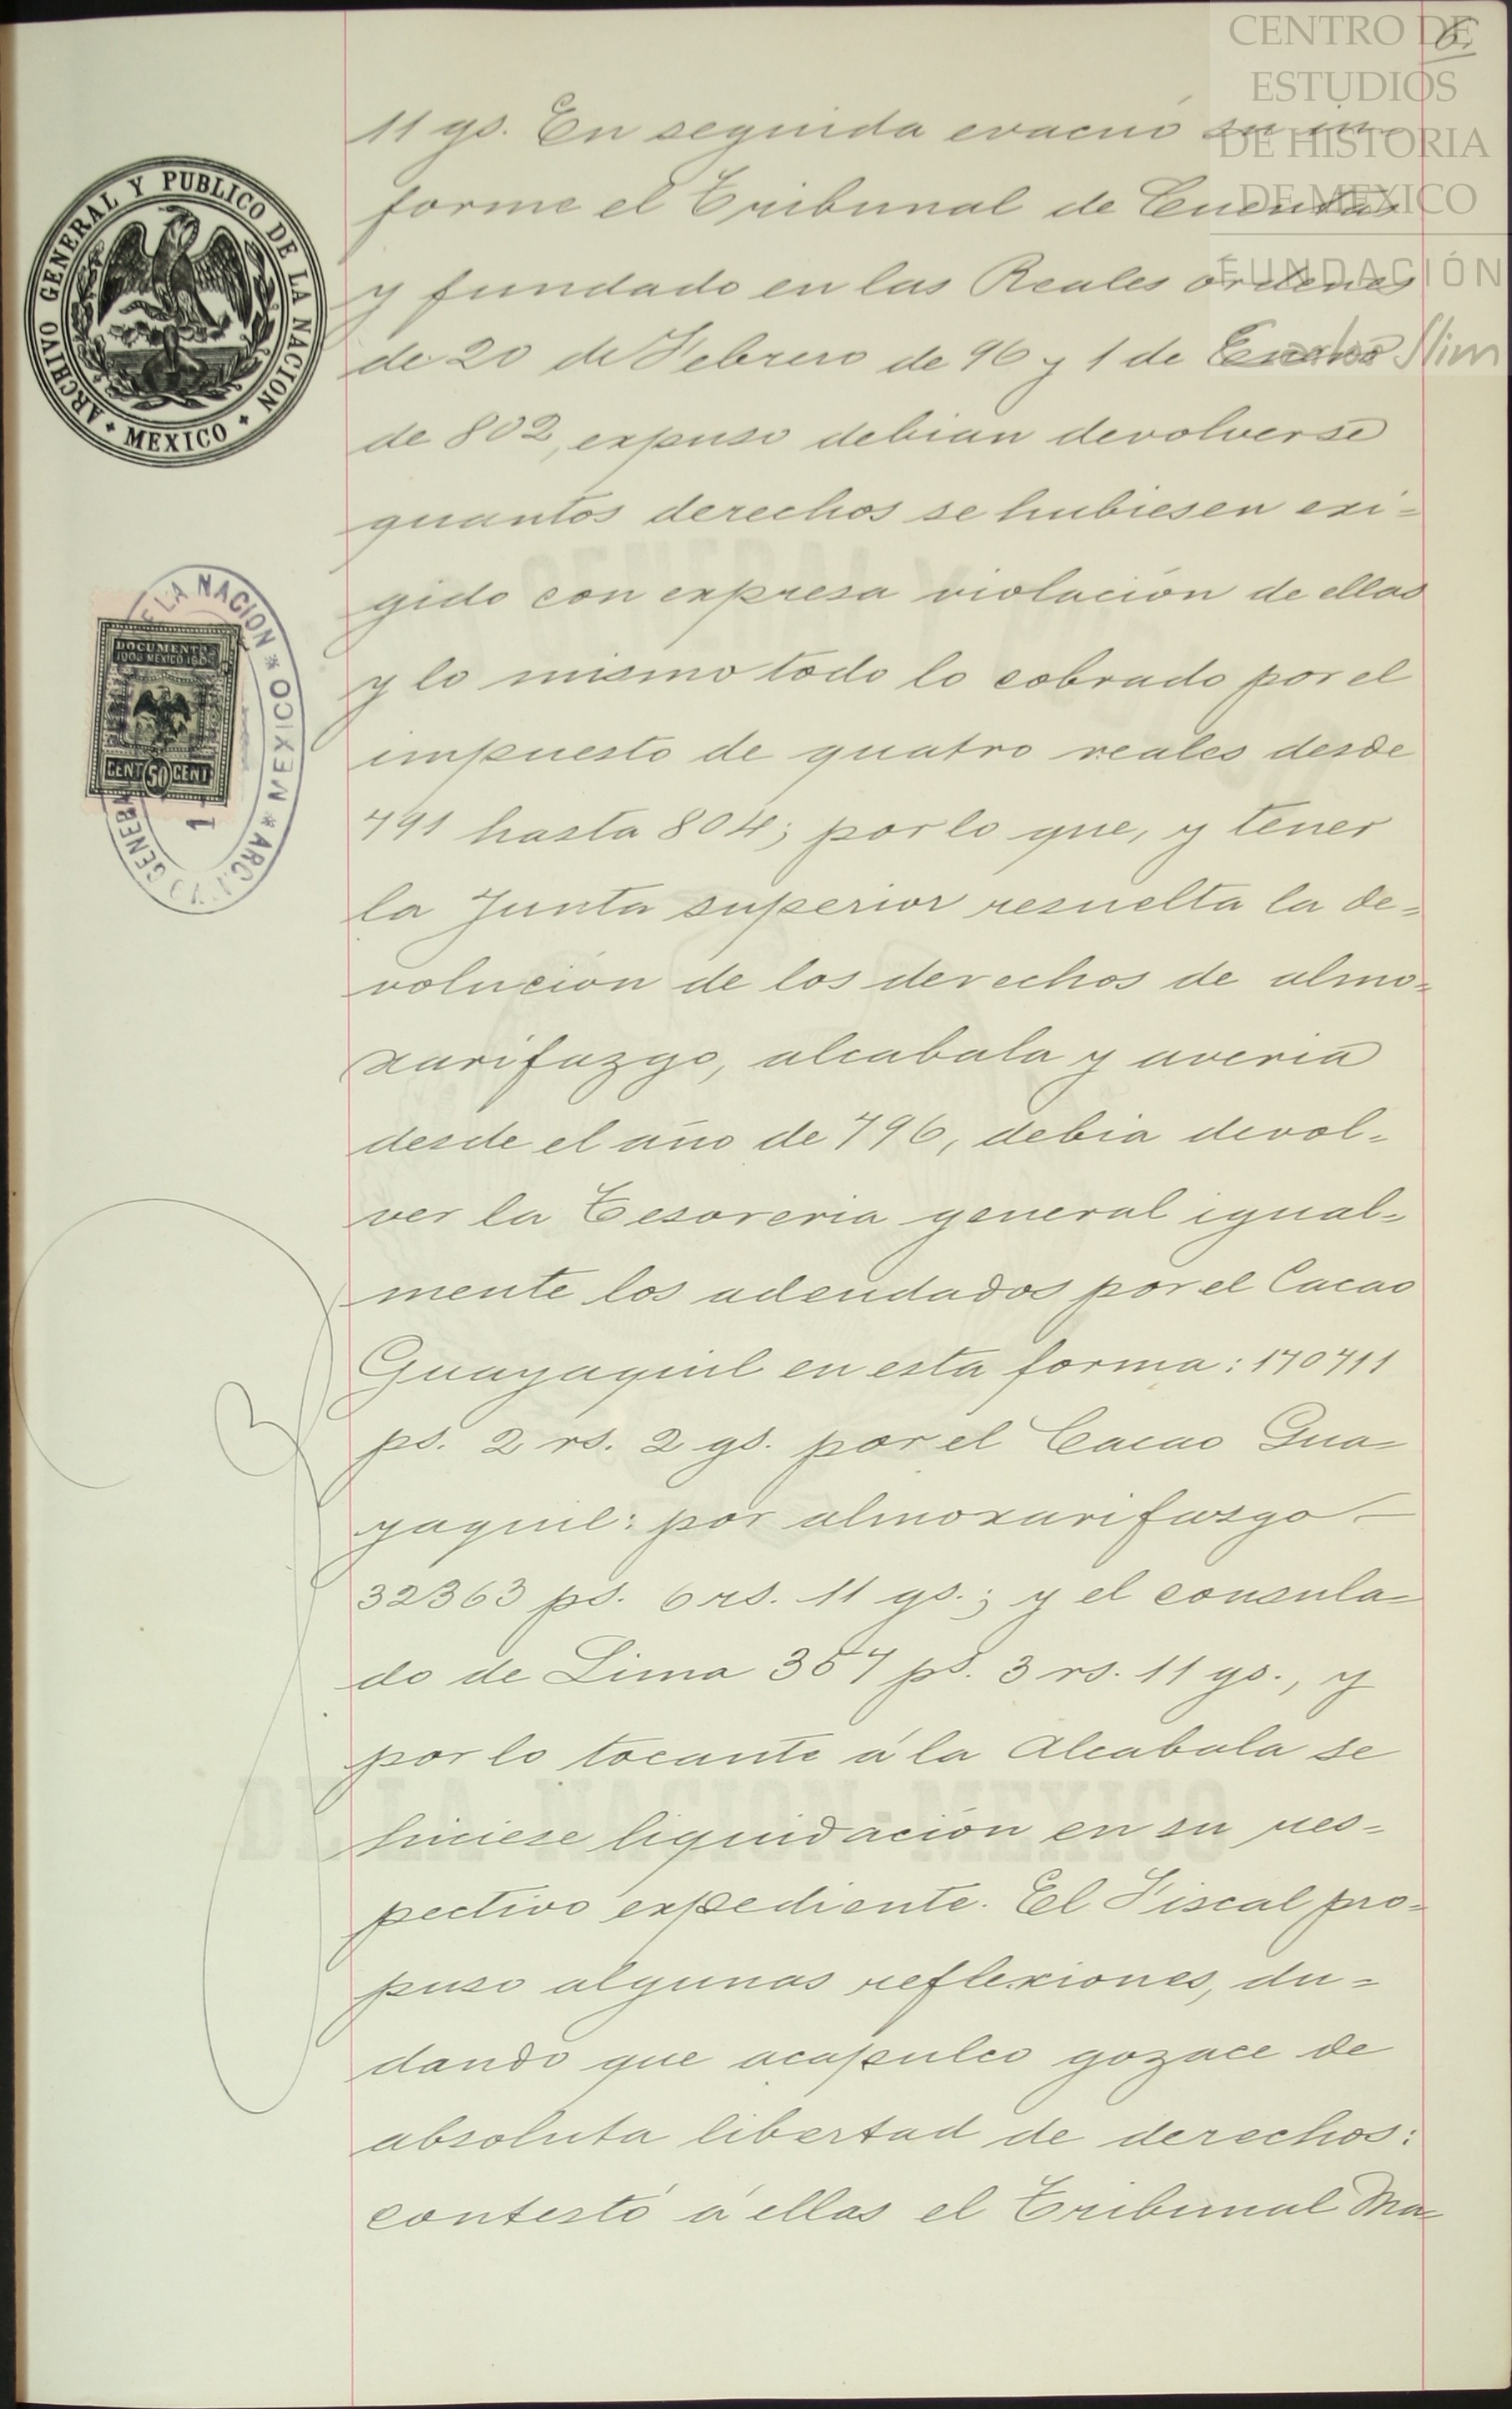 CENTRO DE
ESTUDIOS
DE HISTORIA
DE MEXICO
FUNDACIÓN
Carlos Slim
6.
ARCHIVO GENERAL Y PUBLICO DE LA NACION
MEXICO
DOCUMENTOS
MEXICO
CENT 50 CENT
11 gs. En seguida evacuó su in-
forme el Tribunal de Cuentas
y fundado en las Reales ordenes
de 20 de Febrero de 96 y 1 de Enero
de 802, expuso debian devolverse
quantos derechos se hubiesen exi=
gido con expresa violación de ellas
y lo mismo todo lo cobrado por el
impuesto de quatro reales desde
791 hasta 804; por lo que, y tener
la Junta superior resuelta la de=
volución de los derechos de almo=
xarifazgo, alcabala y averia
desde el año de 796, debia devol=
ver la Tesoreria general igual=
mente los adeudados por el Cacao
Guayaquil en esta forma: 170711
ps. 2 rs. 2 gs. por el Cacao Gua=
yaquil: por almoxarifasgo—
32363 ps. 6 rs. 11 gs.; y el consula=
do de Lima 357 ps. 3 rs. 11 gs., y
por lo tocante á la Alcabala se
hiciese liquidación en su res=
pectivo expediente. El Fiscal pro=
puso algunas reflexiones, du=
dando que acapulco gozace de
absoluta libertad de derechos:
contestó á ellas el Tribunal Ma=